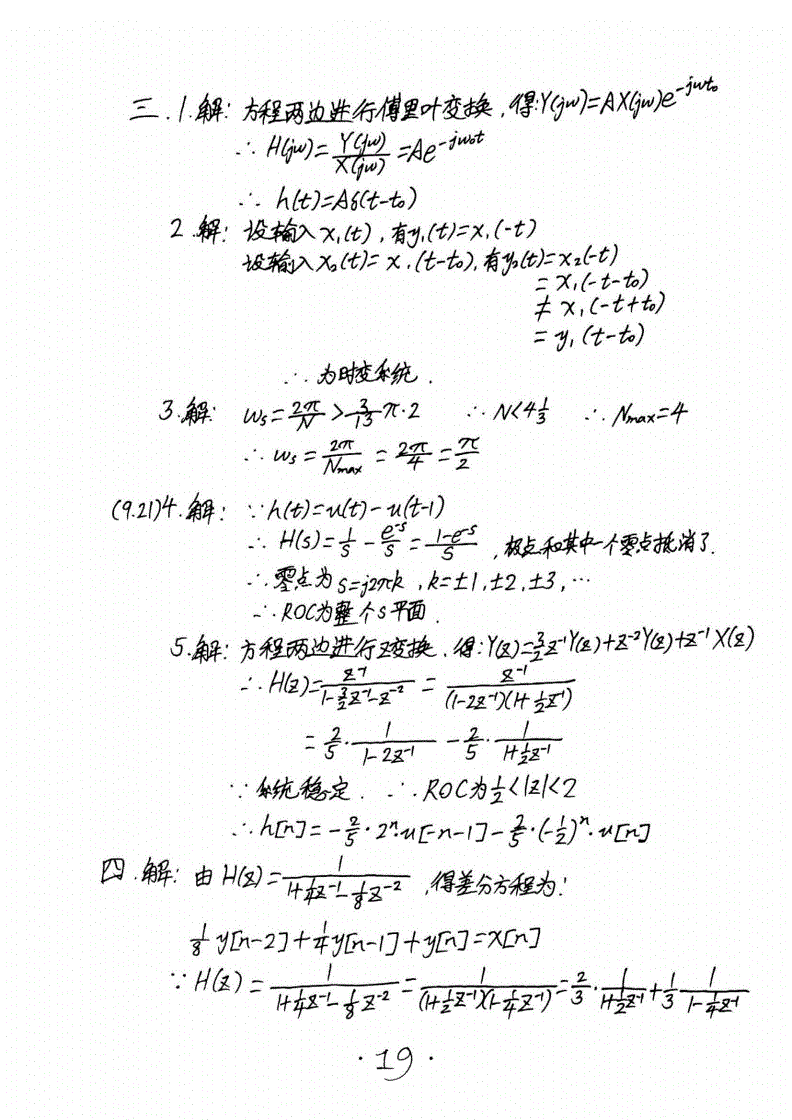 三.1.解: 方程两边进行傅里叶变换,得:Y(jω)=AX(jω)e^{-jωt₀}
∴ H(jω)=Y(jω)/X(jω)=Ae^{-jω₀t}
∴ h(t)=Aδ(t-t₀)
2.解: 设输入x₁(t),有y₁(t)=x₁(-t)
设输入x₂(t)=x₁(t-t₀),有y₂(t)=x₂(-t)
=x₁(-t-t₀)
≠x₁(-t+t₀)
=y₁(t-t₀)
∴为时变系统.
3.解: ωs=2π/N>3/13π·2 ∴N<4 1/3 ∴Nmax=4
∴ωs=2π/Nmax=2π/4=π/2
(9.21)4.解: ∵h(t)=u(t)-u(t-1)
∴H(s)=1/s-e^{-s}/s=(1-e^{-s})/s,极点和其中一个零点抵消了.
∴零点为s=j2πk,k=±1,±2,±3,…
∴ROC为整个s平面.
5.解:方程两边进行z变换,得:Y(z)=3/2z⁻¹Y(z)+z⁻²Y(z)+z⁻¹X(z)
∴H(z)=z⁻¹/(1-3/2z⁻¹-z⁻²)=z⁻¹/((1-2z⁻¹)(1+1/2z⁻¹))
=2/5·1/(1-2z⁻¹)-2/5·1/(1+1/2z⁻¹)
∵系统稳定.∴ROC为1/2<|z|<2
∴h[n]=-2/5·2ⁿ·u[-n-1]-2/5·(-1/2)ⁿ·u[n]
四.解:由H(z)=1/(1+1/4z⁻¹-1/8z⁻²),得差分方程为:
1/8y[n-2]+1/4y[n-1]+y[n]=x[n]
∵H(z)=1/(1+1/4z⁻¹-1/8z⁻²)=1/((1+1/2z⁻¹)(1-1/4z⁻¹))=2/3·1/(1+1/2z⁻¹)+1/3·1/(1-1/4z⁻¹)
·19·